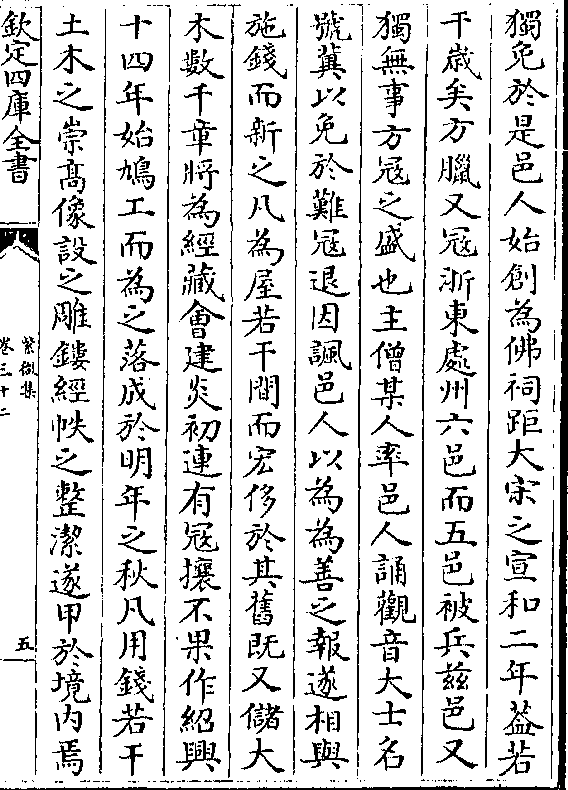 獨免於是邑人始創為佛祠距大宋之宣和二年葢若
干歲矣方臘又冦浙東處州六邑而五邑被兵兹邑又
獨無事方冦之盛也主僧某人率邑人誦觀音大士名
號冀以免於難冦退因諷邑人以為為善之報遂相與
施錢而新之凡為屋若干間而宏侈於其舊既又儲大
木數千章將為經藏會建炎初連有冦攘不果作紹興
十四年始鳩工而為之落成於明年之秋凡用錢若干
土木之崇髙像設之雕鏤經帙之整潔遂甲於境内焉
欽定四庫全書
紫微集
卷三十二
五